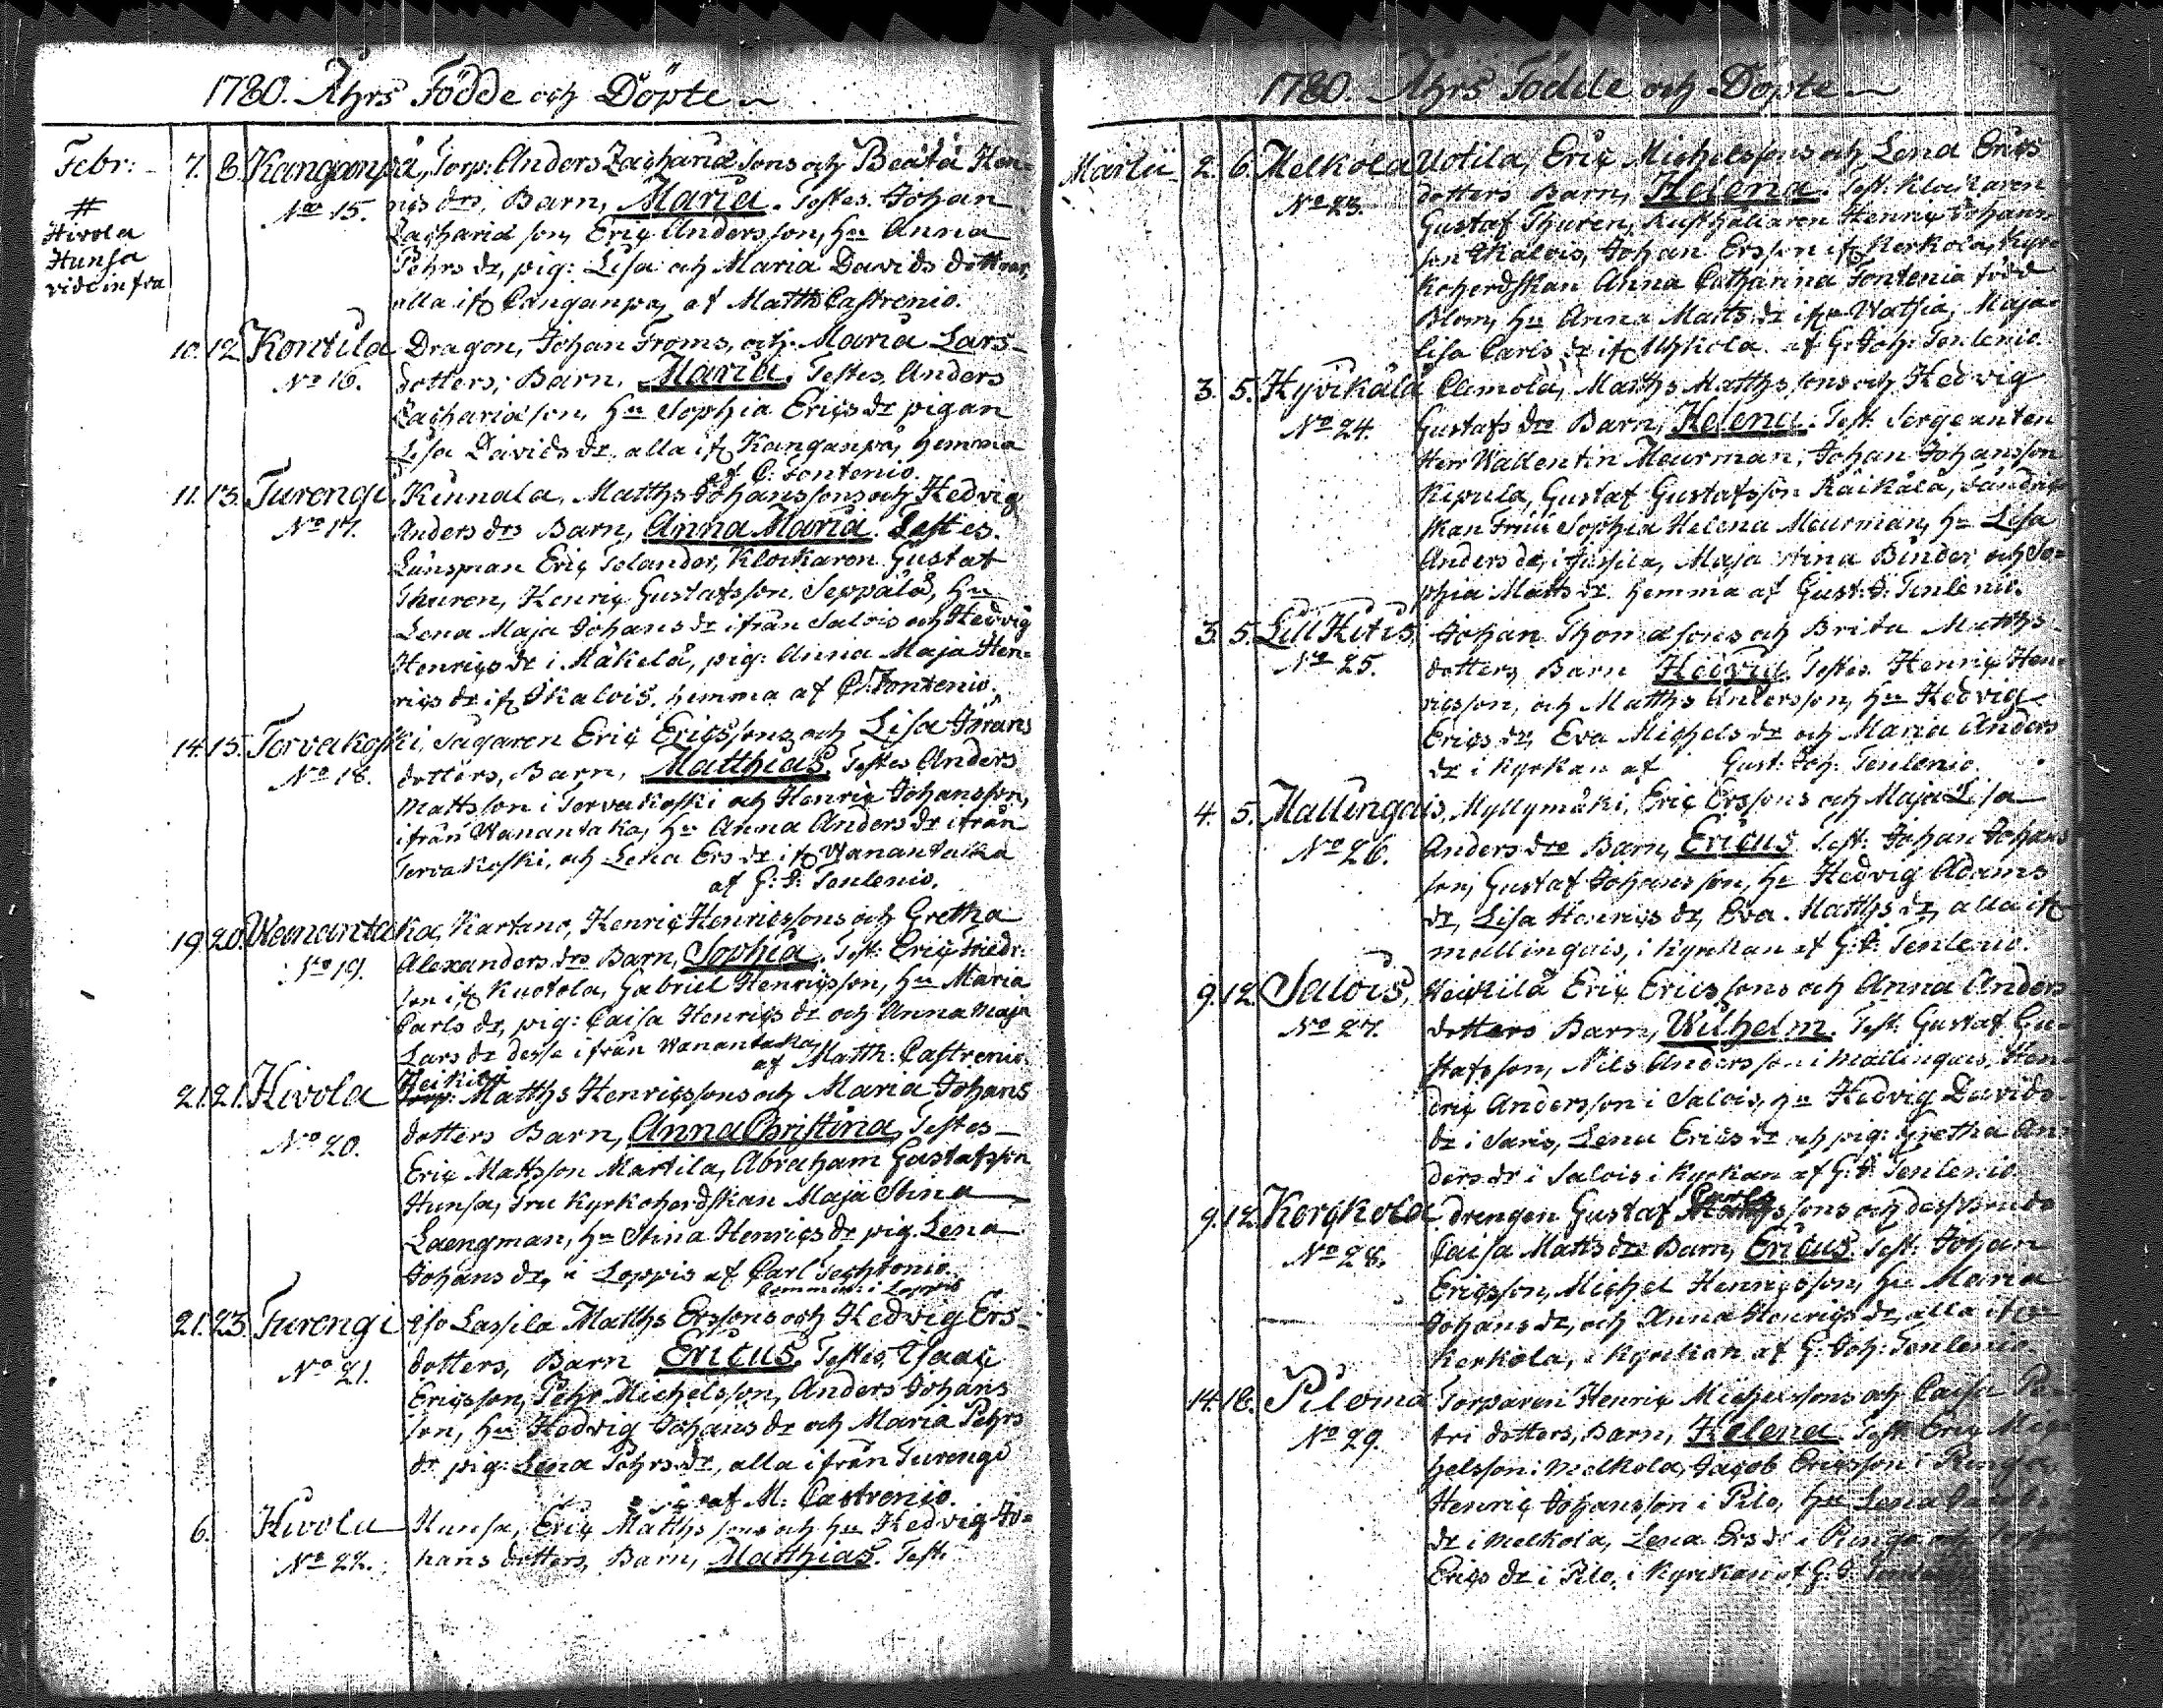 1780. Åhrs Födde och Döpte
Febr: 7. 8. Kanganpä, Torp: Anders Zachariæ sons och Beata Hen-
No 15. rics drs, Barn, Maria. Testes. Johan
#
Hivola
Hunsa
vide infra
Zachariæ son, Eric Andersson, Hu Anna
Pehrs dr, pig: Lisa och Maria Davids döttrar,
alla ifr Canganpä, af Matth Castrenio.
10. 12. Kontila Dragon, Johan Froms, och Maria Lars-
No 16. dotters, Barn, Maria, Testes, Anders
Zachariæ son, Hu Sophia Erics dr pigan
Lisa Davids dr, alla ifr Kanganpä, hemma
af C. Fontenio.
11. 13. Turengi, Kinnala, Matths Johanssons och Hedvig
No 17. Anders drs Barn, Anna Maria. Testes.
Länsman Eric Telander, Klockaren Gustaf
Thuren, Henric Gustafsson Seppälä, Hu
Lena Maja Johans dr ifrån Salois och Hedvig
Henrics dr i Mäkelä, pig: Anna Maja Hen-
rics dr ifr Ukalois, hemma af C: Fontenio.
14. 15. Torvakoski, Sagaren Eric Ericssons och Lisa Jörans
No 18. dotters, Barn, Matthias, Testes Anders
Mattsson i Tervakoski och Henric Johansson,
ifrån Wanantaka, Hu Anna Anders dr ifrån
Tervakoski, och Lena Ers dr ifr Wanantaka
af G: J: Tenlenio.
19. 20. Wanantaka, Kartano, Henric Henricssons och Gretha
No 19. Alexanders drs Barn, Sophia, Test: Eric Friedr:
son ifr Kuotola, Gabriel Henricsson, Hu Maria
Carls dr, pig: Caisa Henrics dr och Anna Maja
Lars dr desse ifrån Wanantaka
af Matth: Castrenio.
Heikilä
21. 21. Hivola Matths Henricssons och Maria Johans
No 20. dotters Barn, Anna Christina, Testes
Eric Mattsson Martila, Abraham Gustafsson
Hunsa, Fru Kyrkoherdskan Maja Stina
Laengman, Hu Stina Henrics dr pig. Lena
Johans dr, i Loppis af Carl Techtonio
Comminist: i Loppis
21. 23. Turengi Iso Lassila Matths Erssons och Hedvig Ers-
No 21. dotters, Barn Ericus, Testes, Isaac
Ericsson, Pehr Michelsson, Anders Johans
son, Hu Hedvig Johans dr och Maria Pehrs
dr pig: Lena Pehrs dr, alla ifrån Turengi
af M: Castrenio.
6. Hivola Hunsa, Eric Matthssons och Hu Hedvig Jo-
No 22. hans dotters, Barn, Matthias. Test:
1780. Åhrs Födde och Döpte
Martii 2. 6. Melkola Uotila, Eric Michelssons och Lena Erics
No 23. dotters Barn, Helena. Test: Klockaren
Gustaf Thuren, Rusthållaren Henric Johans-
son Ukalois, Johan Ersson ifr Kerkola, Kyr-
koherdskan Anna Catharina Fontenia född
Blom, Hu Anna Matts dr ifr Wathia, Maja
Lisa Carls dr ifr Uhkola. af G: Joh: Tenlenio.
3. 5. Hyvikälä Clemola, Matths Matthssons och Hedvig
No 24. Gustafs drs Barn, Helena. Test: Sergeanten
Herr Wallentin Meurman, Johan Johansson
Kipula, Gustaf Gustafsson Räikälä, Fändrik
skan Fruu Sophia Helena Meurman, Hu Lisa
Anders dr, i Jussila, Maja Stina Binder och So-
phia Matts dr. hemma af Gust: J: Tenlenio.
3. 5. Lill Hitis, Johan Thomæ sons och Brita Matths
No 25. dotters Barn Hedvig. Testes Henric Hen-
ricsson, och Matths Andersson, Hu Hedvig
Erics dr, Eva Michels dr och Maria Anders
dr i kyrkan af Gust: Joh: Tenlenio.
4. 5. Mallingais, Myllymäki, Eric Erssons och Maja Lisa
No 26. Anders drs Barn, Ericus Test: Johan Johans
son, Gustaf Johansson, Hu Hedvig Adams
dr, Lisa Henrics dr, Eva Matths dr, alla ifr
Mallingais, i kyrkan af G: J: Tenlenio.
9. 12. Salois, Heikilä Eric Ericssons och Anna Anders
No 27. dotters Barn, Wilhelm. Test: Gustaf Gu-
stafsson, Nils Andersson i Mallingais, Hen-
dric Andersson i Salois, Hu Hedvig Davids
dr i Saris, Lena Erics dr och pig: Gretha An-
ders dr i Salois i kyrkan af G: J: Tenlenio
9. 12. Kerckola drengen Gustaf Carlssons och dess hustrus
No 28. Caisa Matts drs Barn, Ericus. Test: Johan
Ericsson, Michel Henricsson, Hu Maria
Johans dr, och Anna Henrics dr, alla ifr
Kerkola, i kyrkan af G: Joh: Tenlenio.
14. 16. Piloma Torparen Henric Michelssons och Caisa Pe-
No 29. tri dotters, Barn, Helena. Test: Eric Mic-
helsson i Melkola, Jacob Ericsson i Runge,
Henric Johansson i Pilo, Hu Lena Jacobs
dr i Melkola, Lena Ers dr i Runge och
Erics dr i Pilo, i kyrkan af G: J: